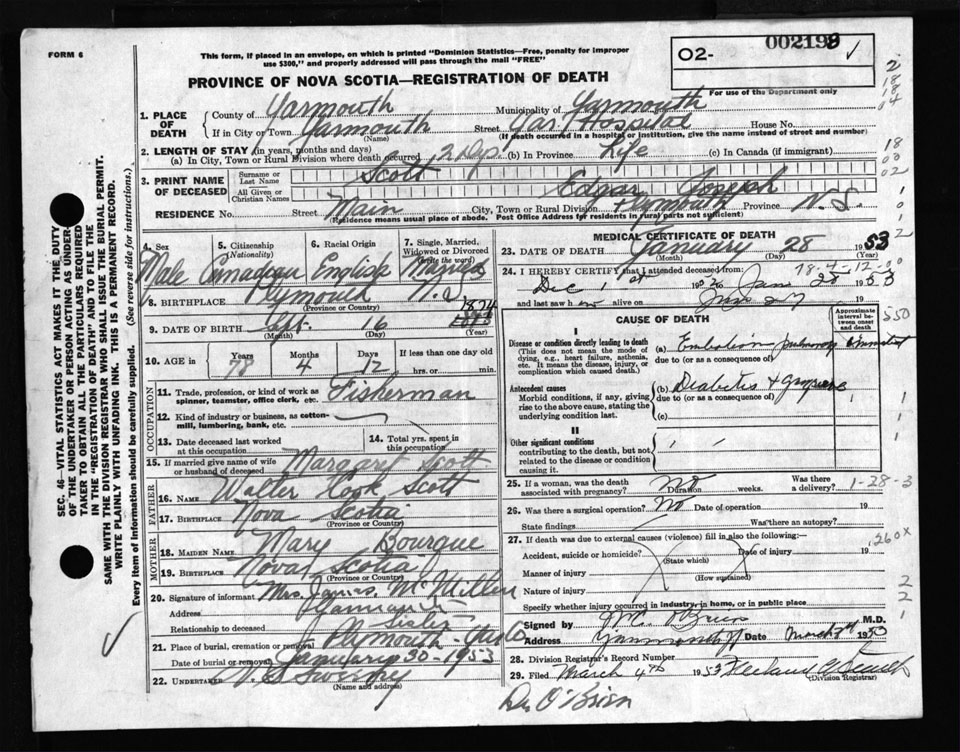 FORM 6
This form, if placed in an envelope, on which is printed "Dominion Statistics—Free, penalty for improper
use $300," and properly addressed will pass through the mail "FREE"
PROVINCE OF NOVA SCOTIA—REGISTRATION OF DEATH
O2-
For use of the Department only
1. PLACE OF DEATH
County of Yarmouth Municipality of Yarmouth
If in City or Town Yarmouth Street Yar Hospital House No.
(Name) (If death occurred in a hospital or institution, give the name instead of street and number)
2. LENGTH OF STAY (in years, months and days)
(a) In City, Town or Rural Division where death occurred 2 Dys. (b) In Province Life (c) In Canada (if immigrant)
3. PRINT NAME OF DECEASED
Surname or Last Name Scott
All Given or Christian Names Edgar Joseph
RESIDENCE No. Street Main City, Town or Rural Division Plymouth Province N.S.
(Residence means usual place of abode. Post Office Address for residents in rural parts not sufficient)
4. Sex Male
5. Citizenship (Nationality) Canadian
6. Racial Origin English
7. Single, Married, Widowed or Divorced (Write the word) Married
8. BIRTHPLACE Plymouth N.S
(Province or Country)
9. DATE OF BIRTH Sept. 16 1874
(Month) (Day) (Year)
10. AGE in Years 78 Months 4 Days 12 If less than one day old hrs. or min.
OCCUPATION
11. Trade, profession, or kind of work as spinner, teamster, office clerk, etc. Fisherman
12. Kind of industry or business, as cotton-mill, lumbering, bank, etc.
13. Date deceased last worked at this occupation
14. Total yrs. spent in this occupation
15. If married give name of wife or husband of deceased Margaret Scott
FATHER
16. NAME Walter Hook Scott
17. BIRTHPLACE Nova Scotia
(Province or Country)
MOTHER
18. MAIDEN NAME Mary Bourque
19. BIRTHPLACE Nova Scotia
(Province or Country)
20. Signature of informant Mrs. James McMillen
Address
Relationship to deceased Sister
21. Place of burial, cremation or removal Plymouth
Date of burial or removal January 30-1953
22. UNDERTAKER
(Name and address)
MEDICAL CERTIFICATE OF DEATH
23. DATE OF DEATH January 28 1953
(Month) (Day)
24. I HEREBY CERTIFY that I attended deceased from
Dec 1 1952 to Jan 28 1953
and last saw h alive on Jan 27 19
CAUSE OF DEATH
Approximate interval between onset and death
I
Disease or condition directly leading to death
(This does not mean the mode of dying, e.g., heart failure, asthenia, etc. It means the disease, injury, or complication which caused death.)
(a) Embolism pulmonary
due to (or as a consequence of)
Antecedent causes
Morbid conditions, if any, giving rise to the above cause, stating the underlying condition last.
(b) Diabetes &
due to (or as a consequence of)
(c)
II
Other significant conditions
contributing to the death, but not related to the disease or condition causing it.
25. If a woman, was the death associated with pregnancy? No Duration weeks. Was there a delivery?
1-28-3
26. Was there a surgical operation? No Date of operation 19
State findings Was there an autopsy?
27. If death was due to external causes (violence) fill in also the following:—
Accident, suicide or homicide? Date of injury 19
(State which)
Manner of injury
(How sustained)
Nature of injury
260X
Specify whether injury occurred in industry, in home, or in public place
Signed by O'Brien M.D.
Address Yarmouth Date
28. Division Registrar's Record Number
29. Filed March 4th 1953
(Division Registrar)
Dr. O'Brien
SEC. 46—VITAL STATISTICS ACT MAKES IT THE DUTY
OF THE UNDERTAKER OR PERSON ACTING AS UNDER-
TAKER TO OBTAIN ALL THE PARTICULARS REQUIRED
IN THE "REGISTRATION OF DEATH" AND TO FILE THE
SAME WITH THE DIVISION REGISTRAR WHO SHALL ISSUE THE BURIAL PERMIT.
WRITE PLAINLY WITH UNFADING INK. THIS IS A PERMANENT RECORD.
Every item of information should be carefully supplied. (See reverse side for instructions.)